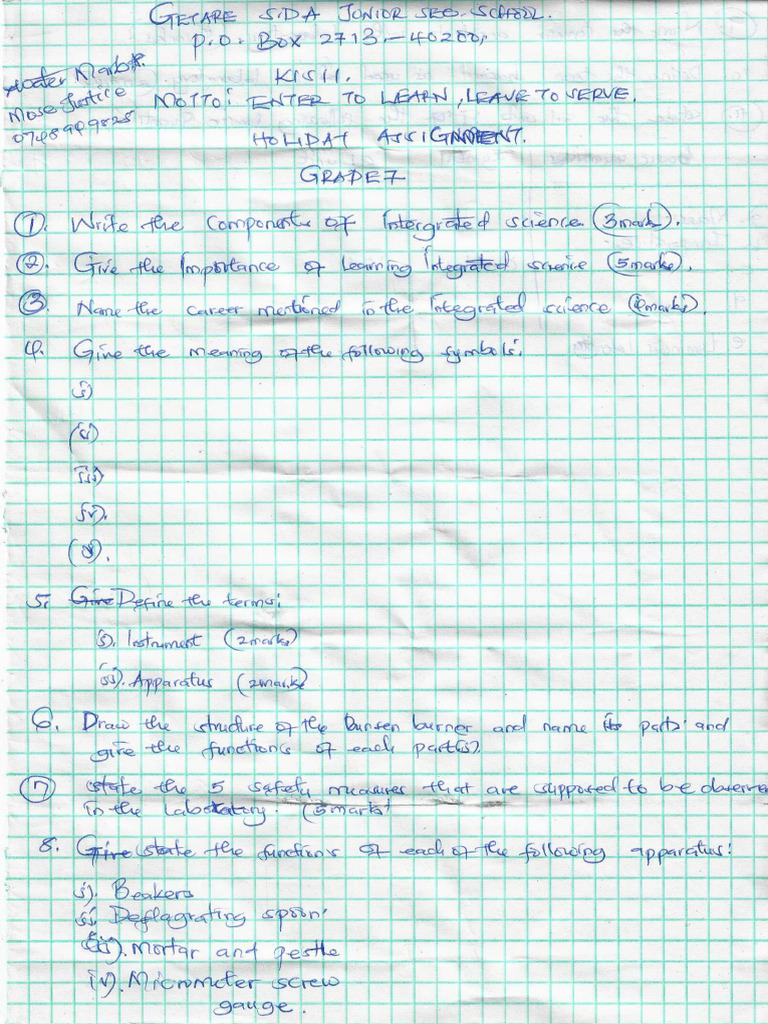 GETARE S.D.A JUNIOR SEC. SCHOOL.
P.O. BOX 2713-40200,
KISII.
Water Mark
Mose Justice
0748949825
MOTTO: ENTER TO LEARN, LEAVE TO SERVE.
HOLIDAY ASSIGNMENT.
GRADE 7
(1). Write the Components of Intergrated science. (3mark).
(2). Give the Importance of Learning Integrated science (5marks).
(3). Name the career mentioned in the Integrated science (marks).
4. Give the meaning of the following symbols:
i)
(ii)
iii)
iv).
(v).
5. Give Define the terms:
i). Instrument (2marks)
ii). Apparatus (2marks)
6. Draw the structure of the bunsen burner and name its parts and
give the functions of each part(s).
(7) state the 5 safety measures that are supposed to be observe
in the Laboratory. (5marks)
8. Give state the functions of each of the following apparatus:
i). Beakers
ii. Deflagrating spoon.
iii). Mortar and pestle
iv). Micrometer screw
gauge.